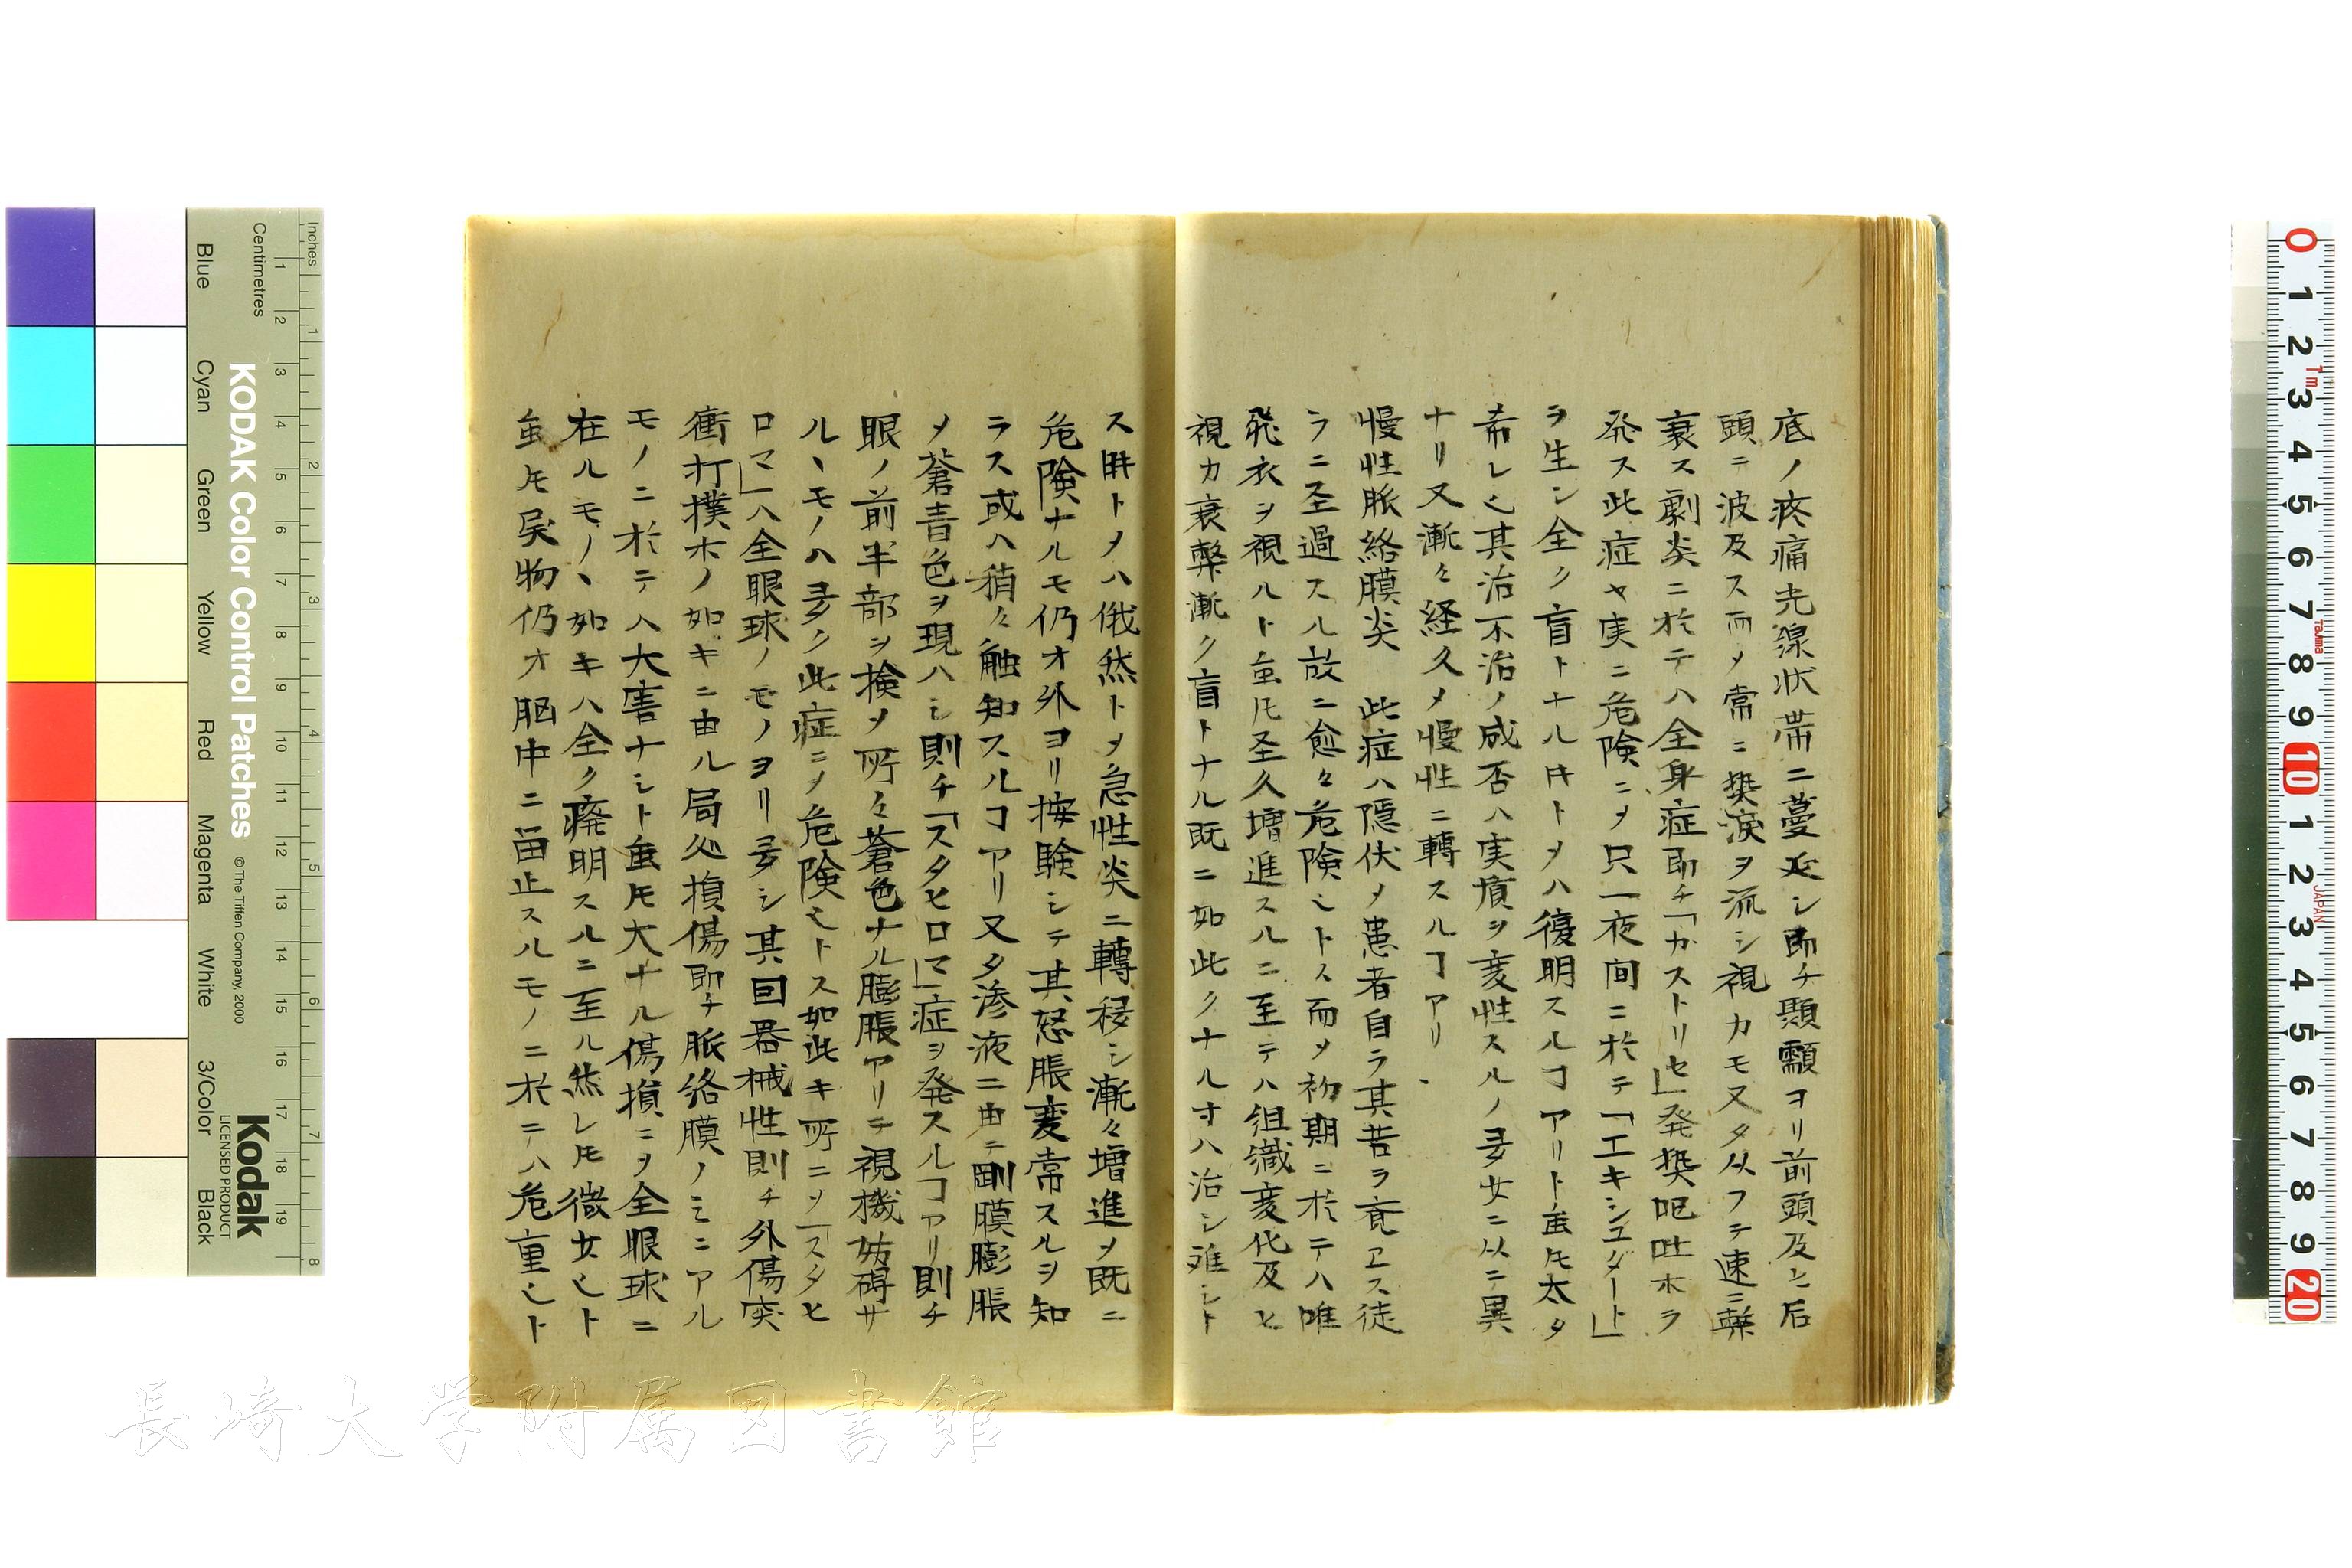 底ノ疼痛光線状帯ニ蔓延シ即チ顳顬ヨリ前頭及ヒ后
頭ニ波及ス而〆常ニ熱涙ヲ流シ視力モ又タ从フテ速ニ弊
衰ス劇炎ニ於テハ全身症即チ「ガストリセ」発熱呕吐ホラ
発ス此症ヤ実ニ危険ニ〆只一夜间ニ於テ「エキシユダート」
ヲ生シ全ク盲トナル
希レ也其治不治ノ成否ハ実質ヲ変性スルノ多少ニ从ニ異
ナリ又漸々経久〆慢性ニ轉スルヿアリ
慢性脈絡膜炎 此症ハ隠伏〆患者自ラ其苦ヲ
ラニ至過スル故ニ愈々危険也トス而〆初期ニ於テハ唯
飛衣ヲ視ルト虽𪜈至久増進スルニ至テハ组織変化及ヒ
視力衰弊漸ク盲トナル既ニ如此クナルオハ治シ難シト
俄然ト〆急性炎ニ轉移シ漸々増進〆既ニ
危険ナルモ仍オ外ヨリ按験シテ其怒脹変常スルヲ知
ラス或ハ稍々触知スルヿアリ又タ渗液ニ由テ剛膜膨脹
〆蒼青色ヲ現ハシ則チ「スタヒロマ」症ヲ発スルヿアリ則チ
眼ノ前半部ヲ検〆所々蒼色ナル膨脹アリテ視機妨碍サ
ルヽモノハ多ク此症ニ〆危険也トス如此キ所ニ〆「スタヒ
ロマ」ハ全眼球ノモノヨリ多シ其回器械性則チ外傷突
衝打撲ホノ如キニ由ル局処損傷即チ脈絡膜ノミニアル
モノニ於テハ大害ナシト虽𪜈大ナル傷損ニ〆全眼球ニ
在ルモノヽ如キハ全ク廃明スルニ至ル然レ𪜈微少也ト
虽𪜈 物仍オ 中ニ畄止スルモノニ於テハ危重也ト
長崎大学附属図書館
Inches
Centimetres
KODAK Color Control Patches
©The Tiffen Company, 2000
Kodak
LICENSED PRODUCT
Blue Cyan Green Yellow Red Magenta White 3/Color Black
1 2 3 4 5 6 7 8
1 2 3 4 5 6 7 8 9 10 11 12 13 14 15 16 17 18 19
0 1 2 3 4 5 6 7 8 9 10 1 2 3 4 5 6 7 8 9 20
1m
Tajima
JAPAN